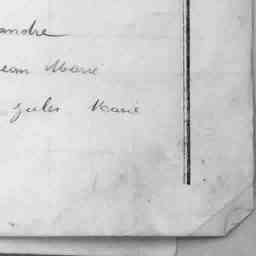 andre
ean Marie
Jules Marie